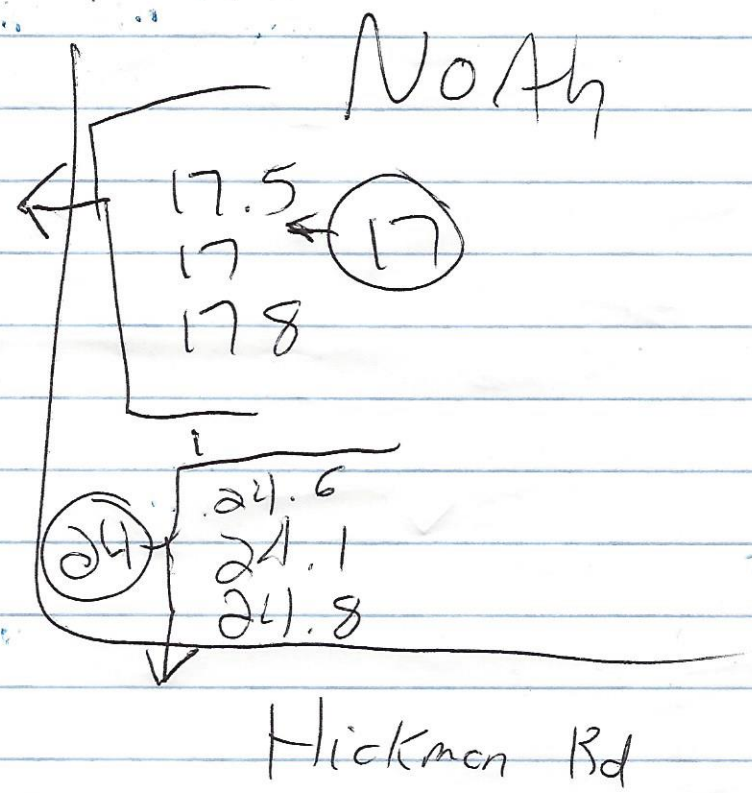 NoAh
17.5
17
17
178
1
24.6
24
24.1
24.8
Hickman Rd